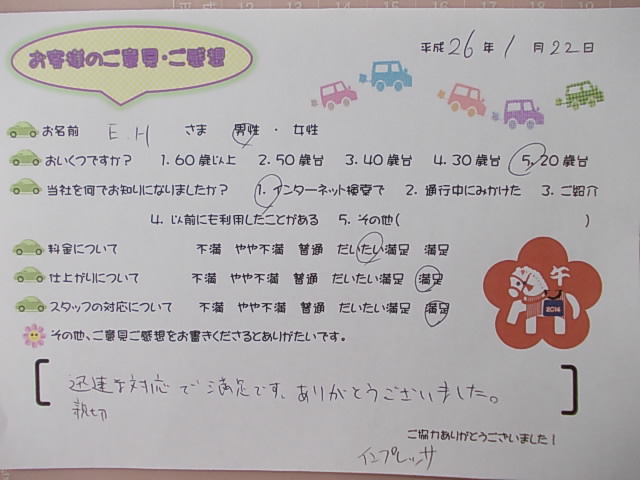 お客様のご意見・ご感想
平成 26 年 1 月 22 日
お名前 E.H さま 男性 ・ 女性
おいくつですか? 1. 60歳以上 2. 50歳台 3. 40歳台 4. 30歳台 5. 20歳台
当社を何でお知りになりましたか? 1. インターネット検索で 2. 通行中にみかけた 3. ご紹介
4. 以前にも利用したことがある 5. その他( )
料金について 不満 やや不満 普通 だいたい満足 満足
仕上がりについて 不満 やや不満 普通 だいたい満足 満足
スタッフの対応について 不満 やや不満 普通 だいたい満足 満足
午
2014
その他、ご意見ご感想をお書きくださるとありがたいです。
迅速な対応で満足です。ありがとうございました。
親切
ご協力ありがとうございました!
インプレッサ